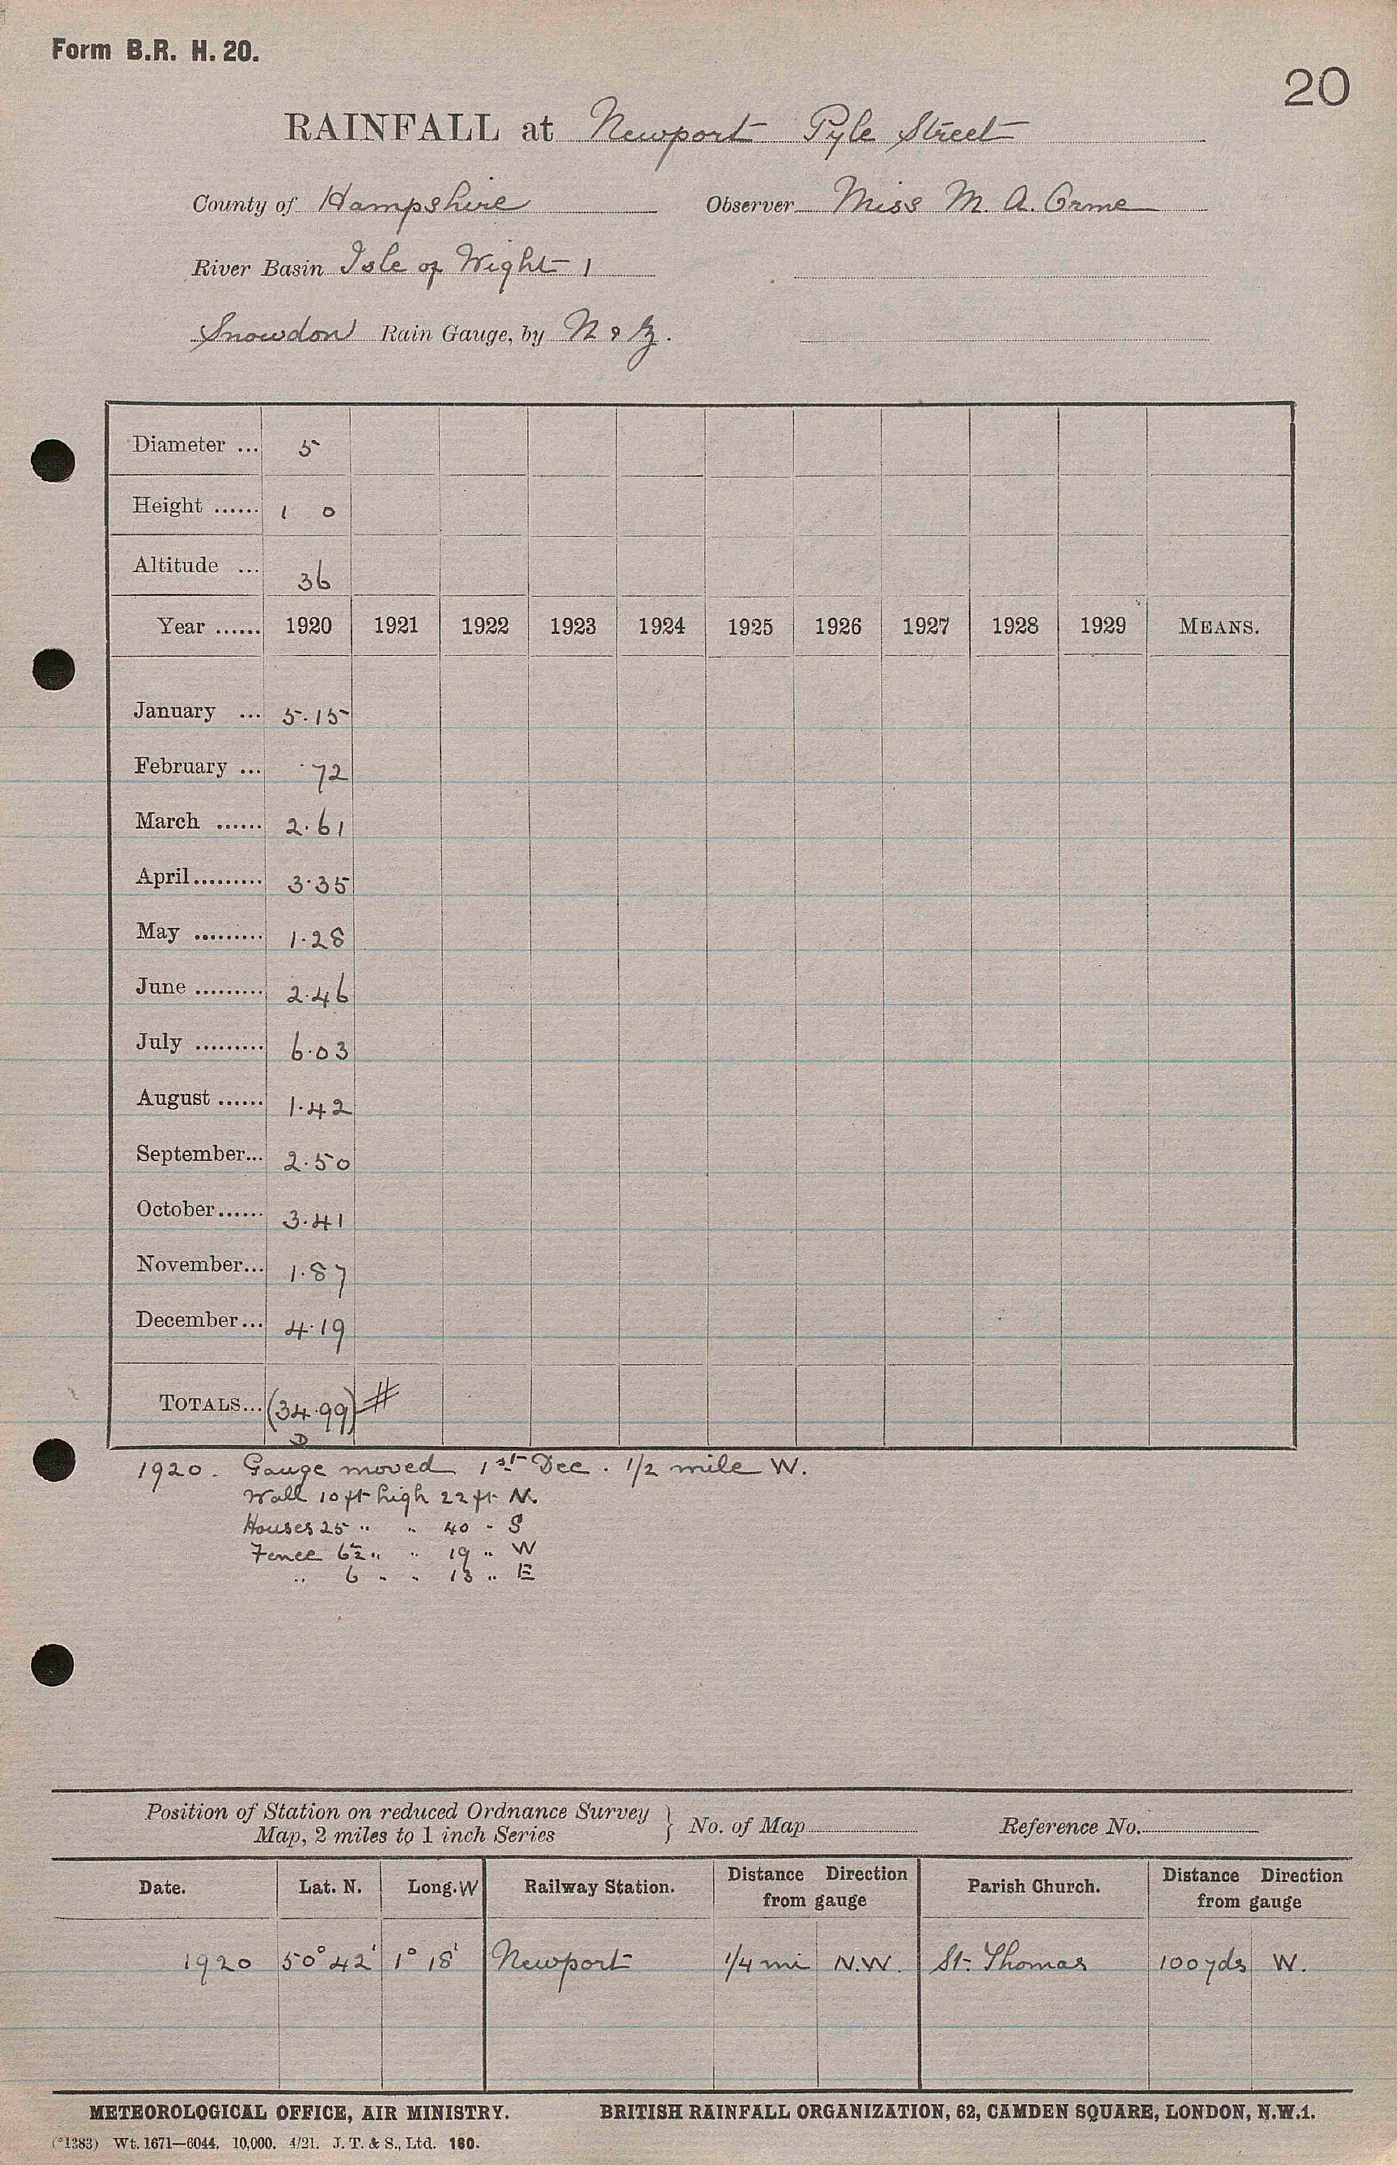 Form B.R. H. 20.
20
RAINFALL at Newport Pyle Street
County of Hampshire Observer Miss M. A. Orme
River Basin Isle of Wight 1
Snowdon Rain Gauge, by N & Z.
Diameter ... 5
Height ...... 1 0
Altitude ... 36
Year ...... 1920 1921 1922 1923 1924 1925 1926 1927 1928 1929 MEANS.
January ... 5.15
February ... .72
March ...... 2.61
April......... 3.35
May ......... 1.28
June ......... 2.46
July ......... 6.03
August ...... 1.42
September... 2.50
October...... 3.41
November... 1.87
December... 4.19
TOTALS... (34.99) #
D
1920. Gauge moved 1st Dec. 1/2 mile W.
Wall 10 ft high 22 ft N.
Houses 25 " " 40 " S
Fence 6½ " " 19 " W
" 6 " " 13 " E
Position of Station on reduced Ordnance Survey
Map, 2 miles to 1 inch Series } No. of Map Reference No.
Date. Lat. N. Long. W Railway Station. Distance Direction from gauge Parish Church. Distance Direction from gauge
1920 50° 42' 1° 18' Newport 1/4 mi N.W. St. Thomas 100 yds W.
METEOROLOGICAL OFFICE, AIR MINISTRY. BRITISH RAINFALL ORGANIZATION, 62, CAMDEN SQUARE, LONDON, N.W.1.
(*1383) Wt. 1671—6044. 10,000. 4/21. J. T. & S., Ltd. 160.